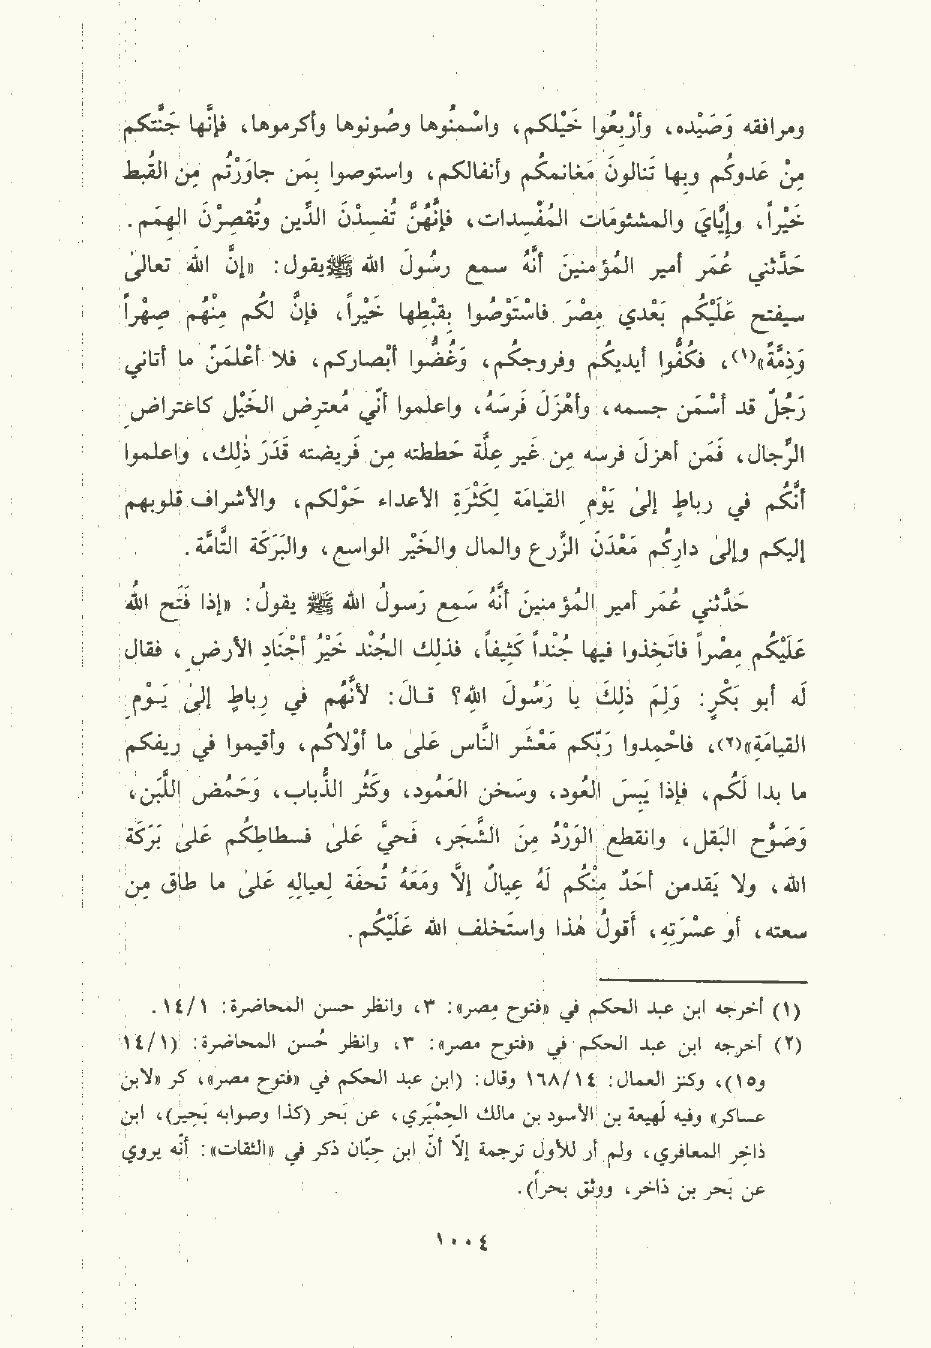 ومرافقه وَصَيْده، وأرْبِعُوا خَيْلكم، واسْمنُوها وصُونوها وأكرموها، فإنَّها جَنَّتكم
مِنْ عَدوكُم وبها تَنالونَ مَغانمكُم وأنفالكم، واستوصوا بِمَن جاوَرْتُم مِن القُبط
خَيْراً، وإيَّايَ والمشئومَات المُفْسِدات، فإنَّهُنَّ تُفسِدْنَ الدِّين وتُقصِرْنَ الهِمَم.
حَدَّثني عُمَر أمير المُؤمنينَ أنَّهُ سمع رسُولَ الله ﷺ يقول: «إنَّ اللهَ تعالىٰ
سيفتح عَلَيْكُم بَعْدي مِصْرَ فاسْتَوْصُوا بِقبْطِها خَيْراً، فإنَّ لكُم مِنْهُم صِهْراً
وَذِمَّةً»(١)، فكُفُّوا أيديكُم وفروجكُم، وغُضُّوا أبْصاركم، فلا أعْلمَنّ ما أتاني
رَجُلٌ قد أسْمَن جسمه، وأهْزَلَ فَرَسَهُ، واعلموا أنّي مُعترِض الخَيْل كاعتراضِ
الرِّجال، فَمَن أهزلَ فرسه مِن غَير عِلَّة حَططته مِن فَريضته قَدَرَ ذٰلِك، واعلموا
أنَّكُم في رباطٍ إلىٰ يَوْمِ القيامَة لِكَثْرَةِ الأعداء حَوْلكم، والأشراف قلوبهم
إليكم وإلىٰ دارِكُم مَعْدَنَ الزَّرع والمال والخَيْر الواسع، والبَرَكَة التَّامَّة.
حَدَّثني عُمَر أمير المُؤمنينَ أنَّهُ سَمع رَسولُ الله ﷺ يقولُ: «إذا فَتَح اللهُ
عَلَيْكُم مِصْراً فاتَخِذوا فيها جُنْداً كَثِيفاً، فذلِك الجُنْد خَيْرُ أجْنَادِ الأرضِ، فقال
لَه أبو بَكْرٍ: وَلِمَ ذٰلِكَ يا رَسُولَ اللهِ؟ قـالَ: لأنَّهُم في رِباطٍ إلىٰ يَـوْمِ
القيامَةِ»(٢)، فاحْمِدوا رَبّكم مَعْشَر النَّاس عَلىٰ ما أوْلاكُم، وأقيموا في ريفكم
ما بدا لَكُم، فإذا يَبِسَ العُود، وسَخن العَمُود، وكَثُر الذُّباب، وَحَمُض اللَّبَن،
وَصَوَّح البَقل، وانقطع الوَرْدُ مِنَ الشَّجَر، فَحيَّ عَلىٰ فسطاطِكُم عَلىٰ بَرَكَة
الله، ولا يَقدمن أحَدٌ مِنْكُم لَهُ عِيالٌ إلاَّ ومَعَهُ تُحفَة لِعيالِهِ عَلىٰ ما طاق مِن
سعته، أو عسْرَتِهِ، أقولُ هٰذا واستَخلف الله عَلَيْكُم.
(١) أخرجه ابن عبد الحكم في «فتوح مصر»: ٣، وانظر حسن المحاضرة: ١٤/١.
(٢) أخرجه ابن عبد الحكم في «فتوح مصر»: ٣، وانظر حُسن المحاضرة: (١٤/١
و١٥)، وكنز العمال: ١٦٨/١٤ وقال: (ابن عبد الحكم في «فتوح مصر»، كر «لابن
عساكر» وفيه لَهيعة بن الأسود بن مالك الحِمْيَري، عن بَحر (كذا وصوابه بَحِير)، ابن
ذاخِر المعافري، ولم أر للأول ترجمة إلاّ أنّ ابن حِبّان ذكر في «الثقات»: أنّه يروي
عن بَحر بن ذاخر، ووثق بحراً).
١٠٠٤